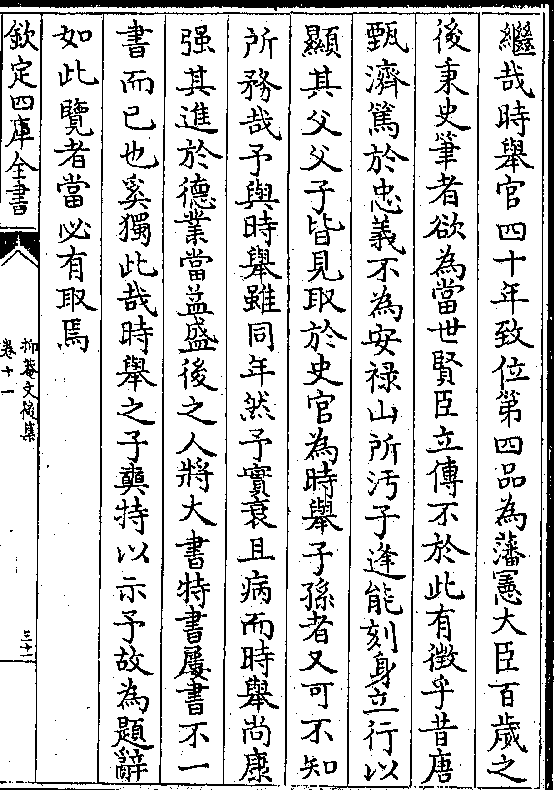 繼哉時舉官四十年致位第四品為藩憲大臣百歲之
後秉史筆者欲為當世賢臣立傳不於此有徵乎昔唐
甄濟篤於忠義不為安祿山所汚子逢能刻身立行以
顯其父父子皆見取於史官為時舉子孫者又可不知
所務哉予與時舉雖同年然予實衰且病而時舉尚康
强其進於德業當益盛後之人將大書特書屢書不一
書而已也奚獨此哉時舉之子龔特以示予故為題辭
如此覽者當必有取焉
欽定四庫全書
抑菴文後集
卷十一
三十一